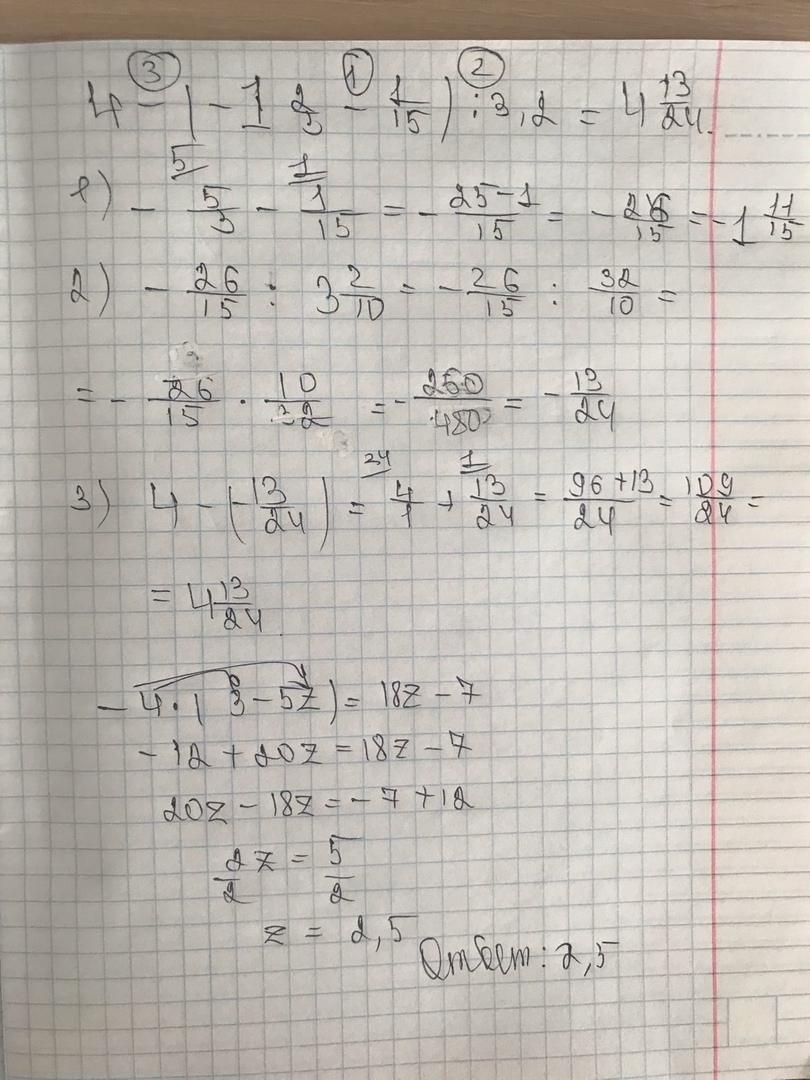 ③ ① ②
4 - (-1 2/3 - 1/15) : 3,2 = 4 13/24.
5 1
1) - 5/3 - 1/15 = - 25-1/15 = - 26/15 = -1 11/15
2) - 26/15 : 3 2/10 = - 26/15 : 32/10 =
= - 26/15 · 10/32 = - 260/480 = - 13/24
24 1
3) 4 - (-13/24) = 4/1 + 13/24 = 96+13/24 = 109/24 =
= 4 13/24.
-4·(3-5z) = 18z - 7
-12 + 20z = 18z - 7
20z - 18z = -7 + 12
2/2 z = 5/2
z = 2,5
Ответ: 2,5